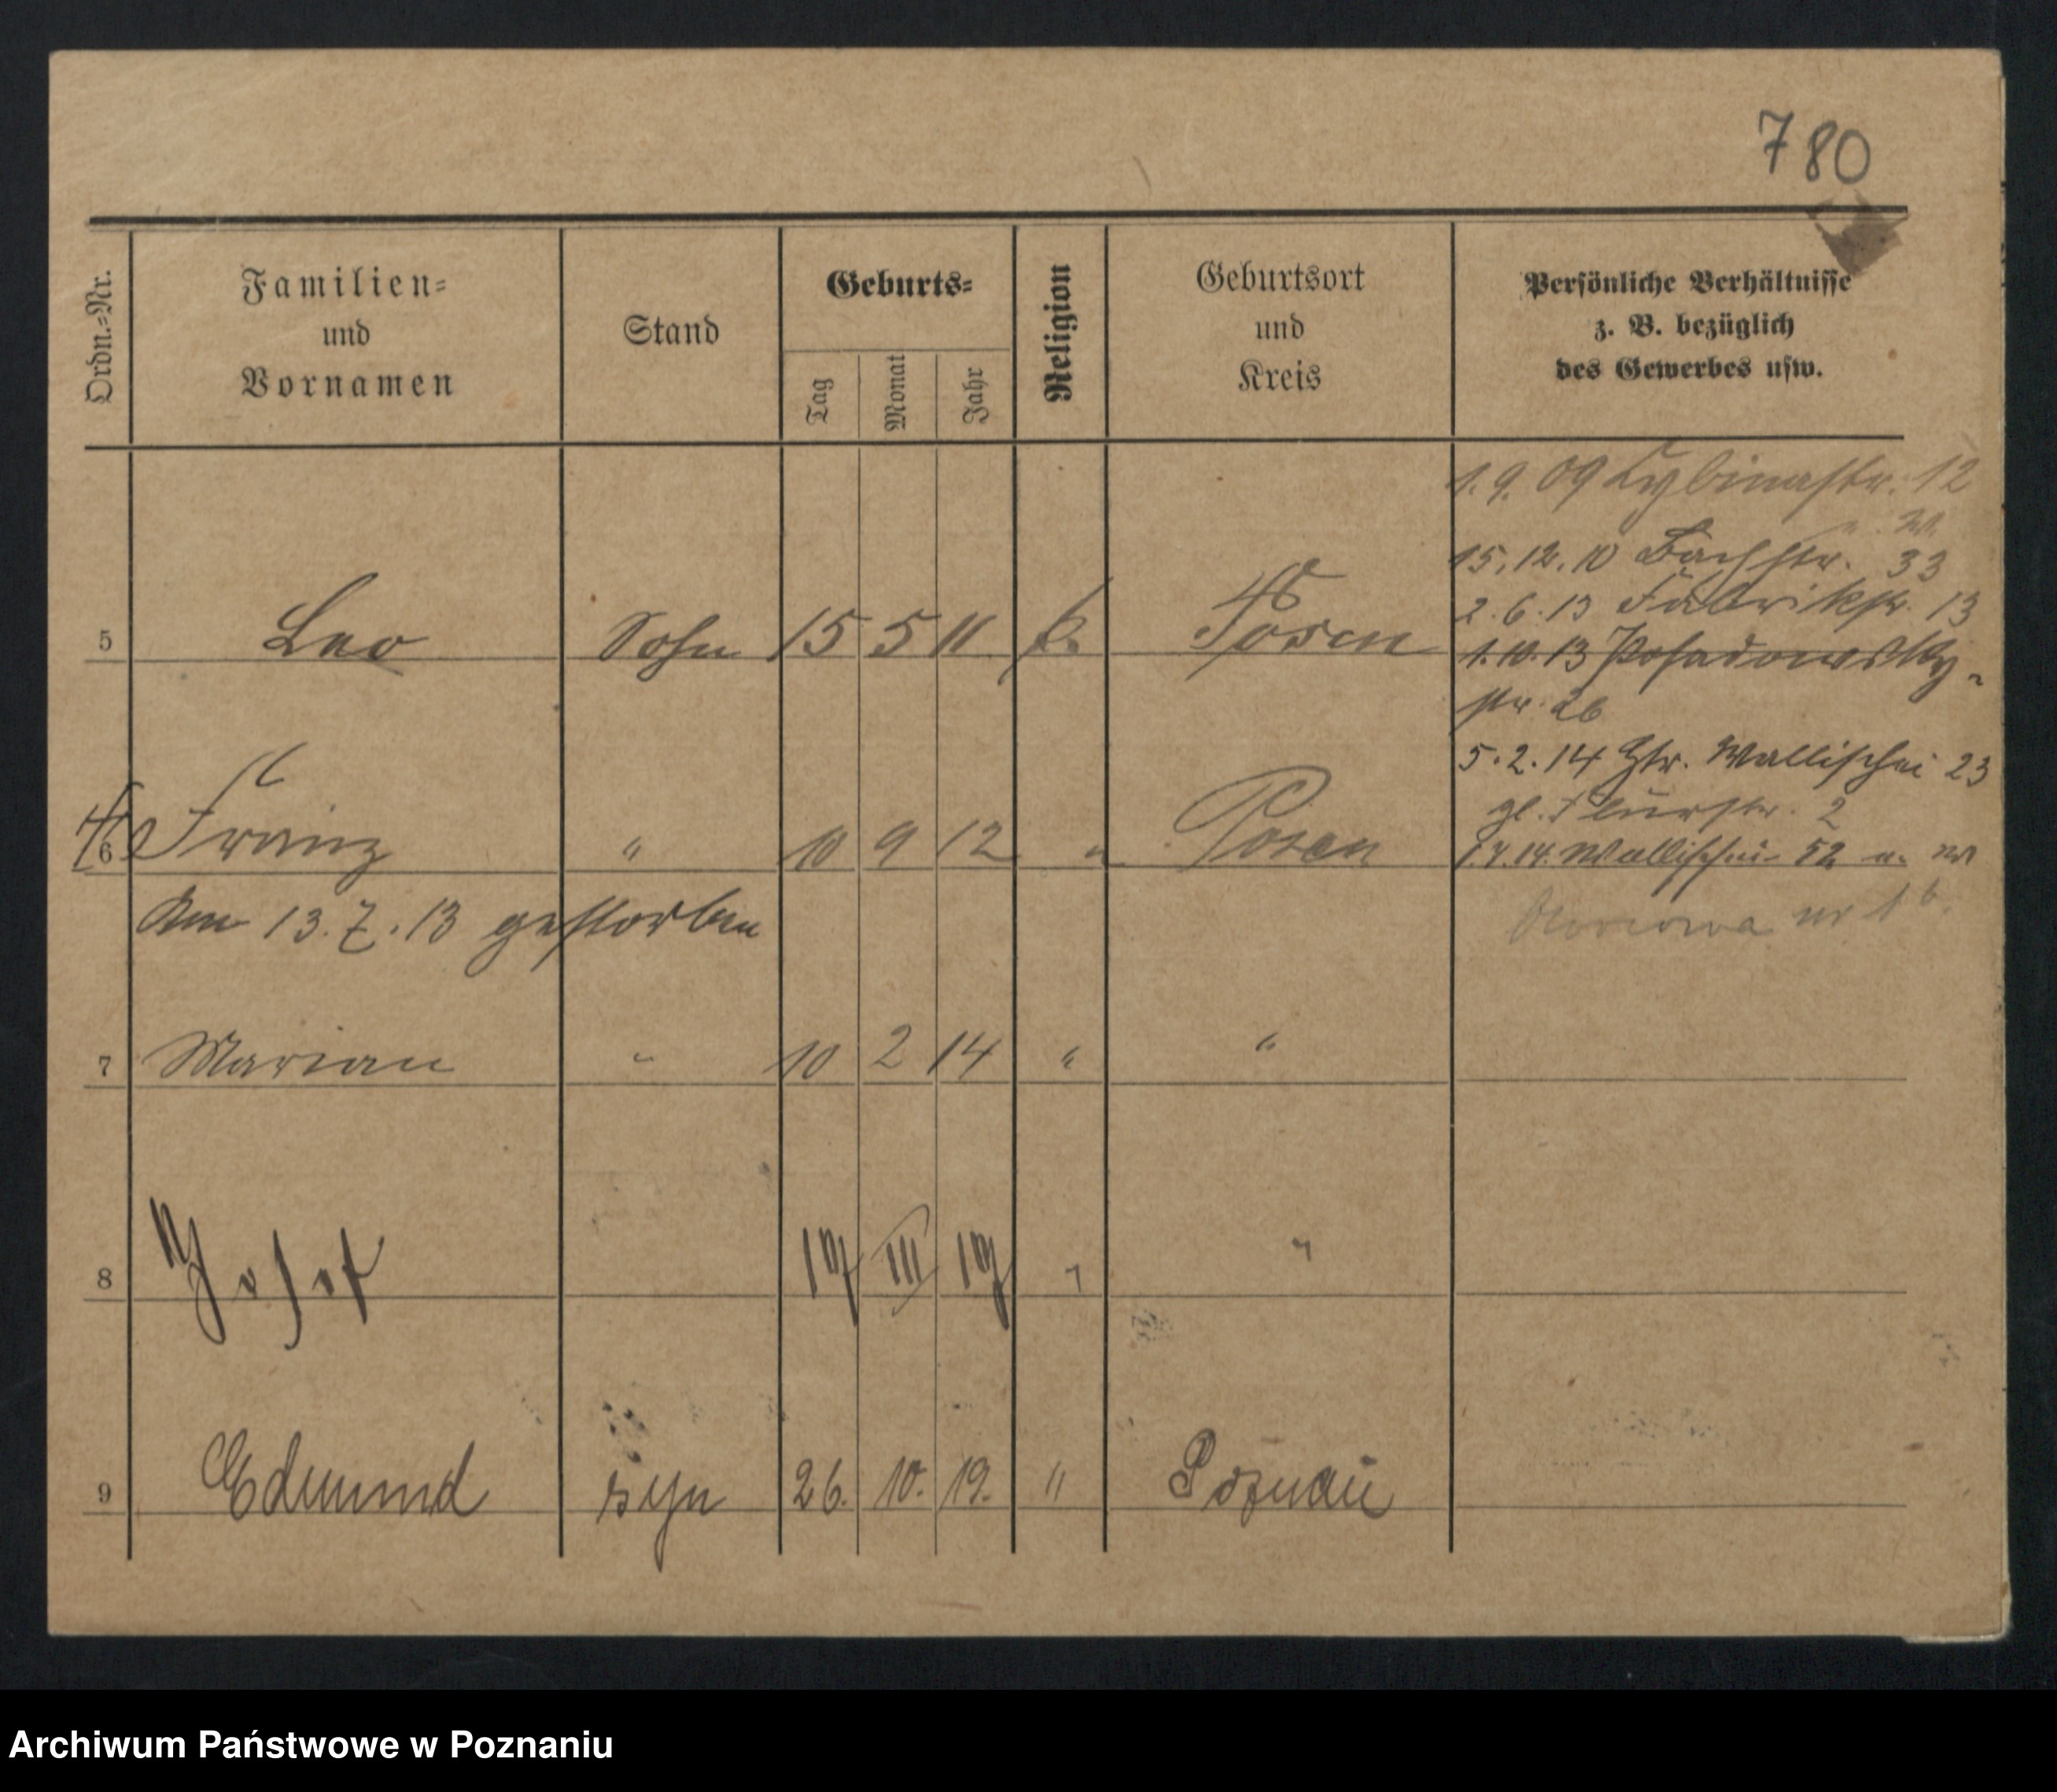 780
Ordn.-Nr.
Familien-
und
Vornamen
Stand
Geburts-
Tag
Monat
Jahr
Religion
Geburtsort
und
Kreis
Persönliche Verhältnisse
z. B. bezüglich
des Gewerbes usw.
1.9.09 Cybinastr. 12
15.12.10 Bachstr. 33
2.6.13 Fabrikstr. 13
5 Leo Sohn 15 5 11 k. Posen
1.10.13 Posadowsky-
str. 26
5.2.14 Htr. Wallischei 23
gl. Flurstr. 2
6 Franz " 10 9 12 " Posen
1.4.14. Wallischei 52
Am 13.7.13 gestorben
nr 16.
7 Marian " 10 2 14 " "
8 Josef 17 III 17 " "
9 Edmund syn 26. 10. 19. " Poznań
Archiwum Państwowe w Poznaniu